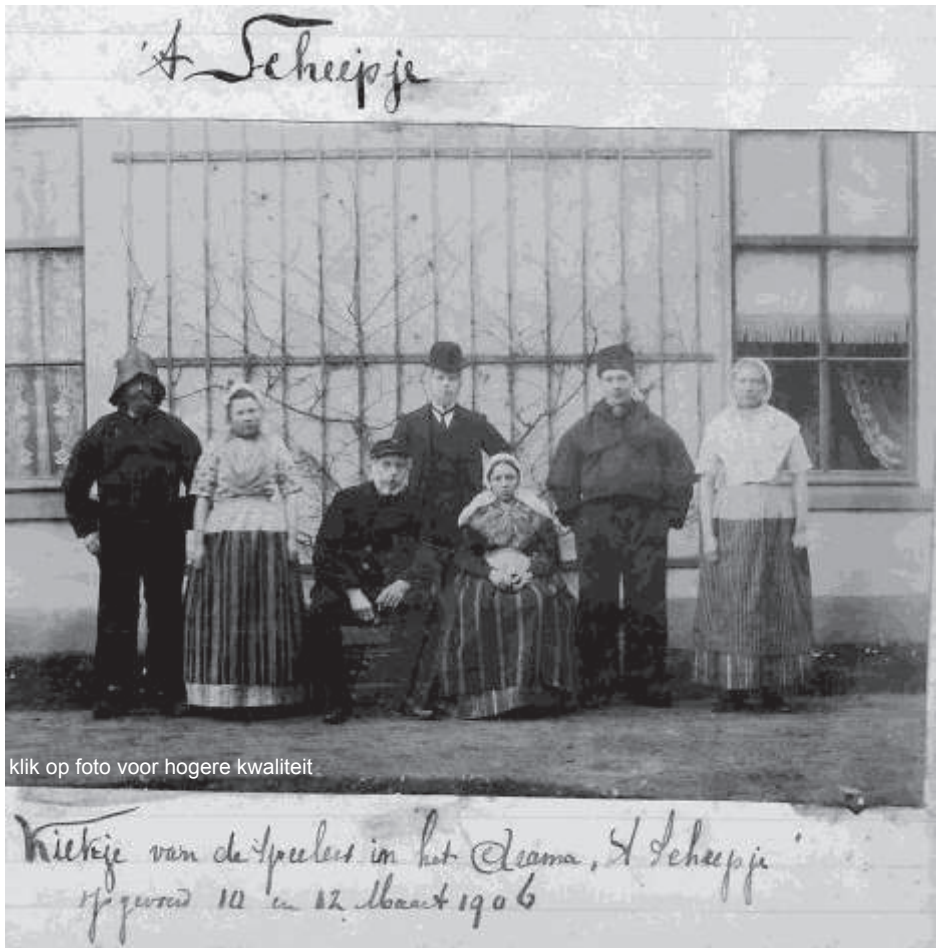 't Scheepje
klik op foto voor hogere kwaliteit
Kiekje van de speelers in het Drama, 't Scheepje"
opgevoerd 10 en 12 Maart 1906